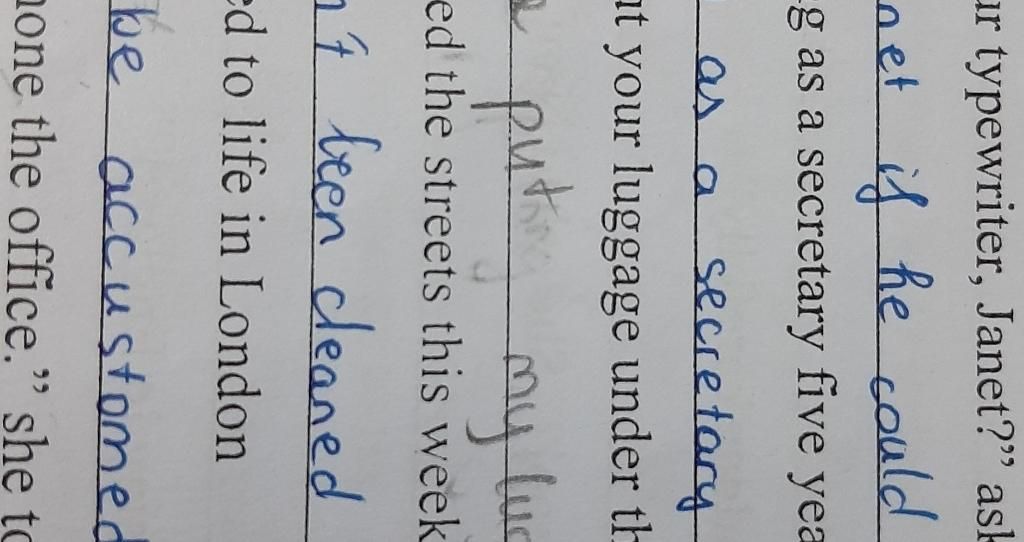 ur typewriter, Janet?" ask
net if he could
g as a secretary five yea
as a secretary
nt your luggage under th
put my lug
ed the streets this week
n't been cleaned
ed to life in London
be accustomed
none the office." she to